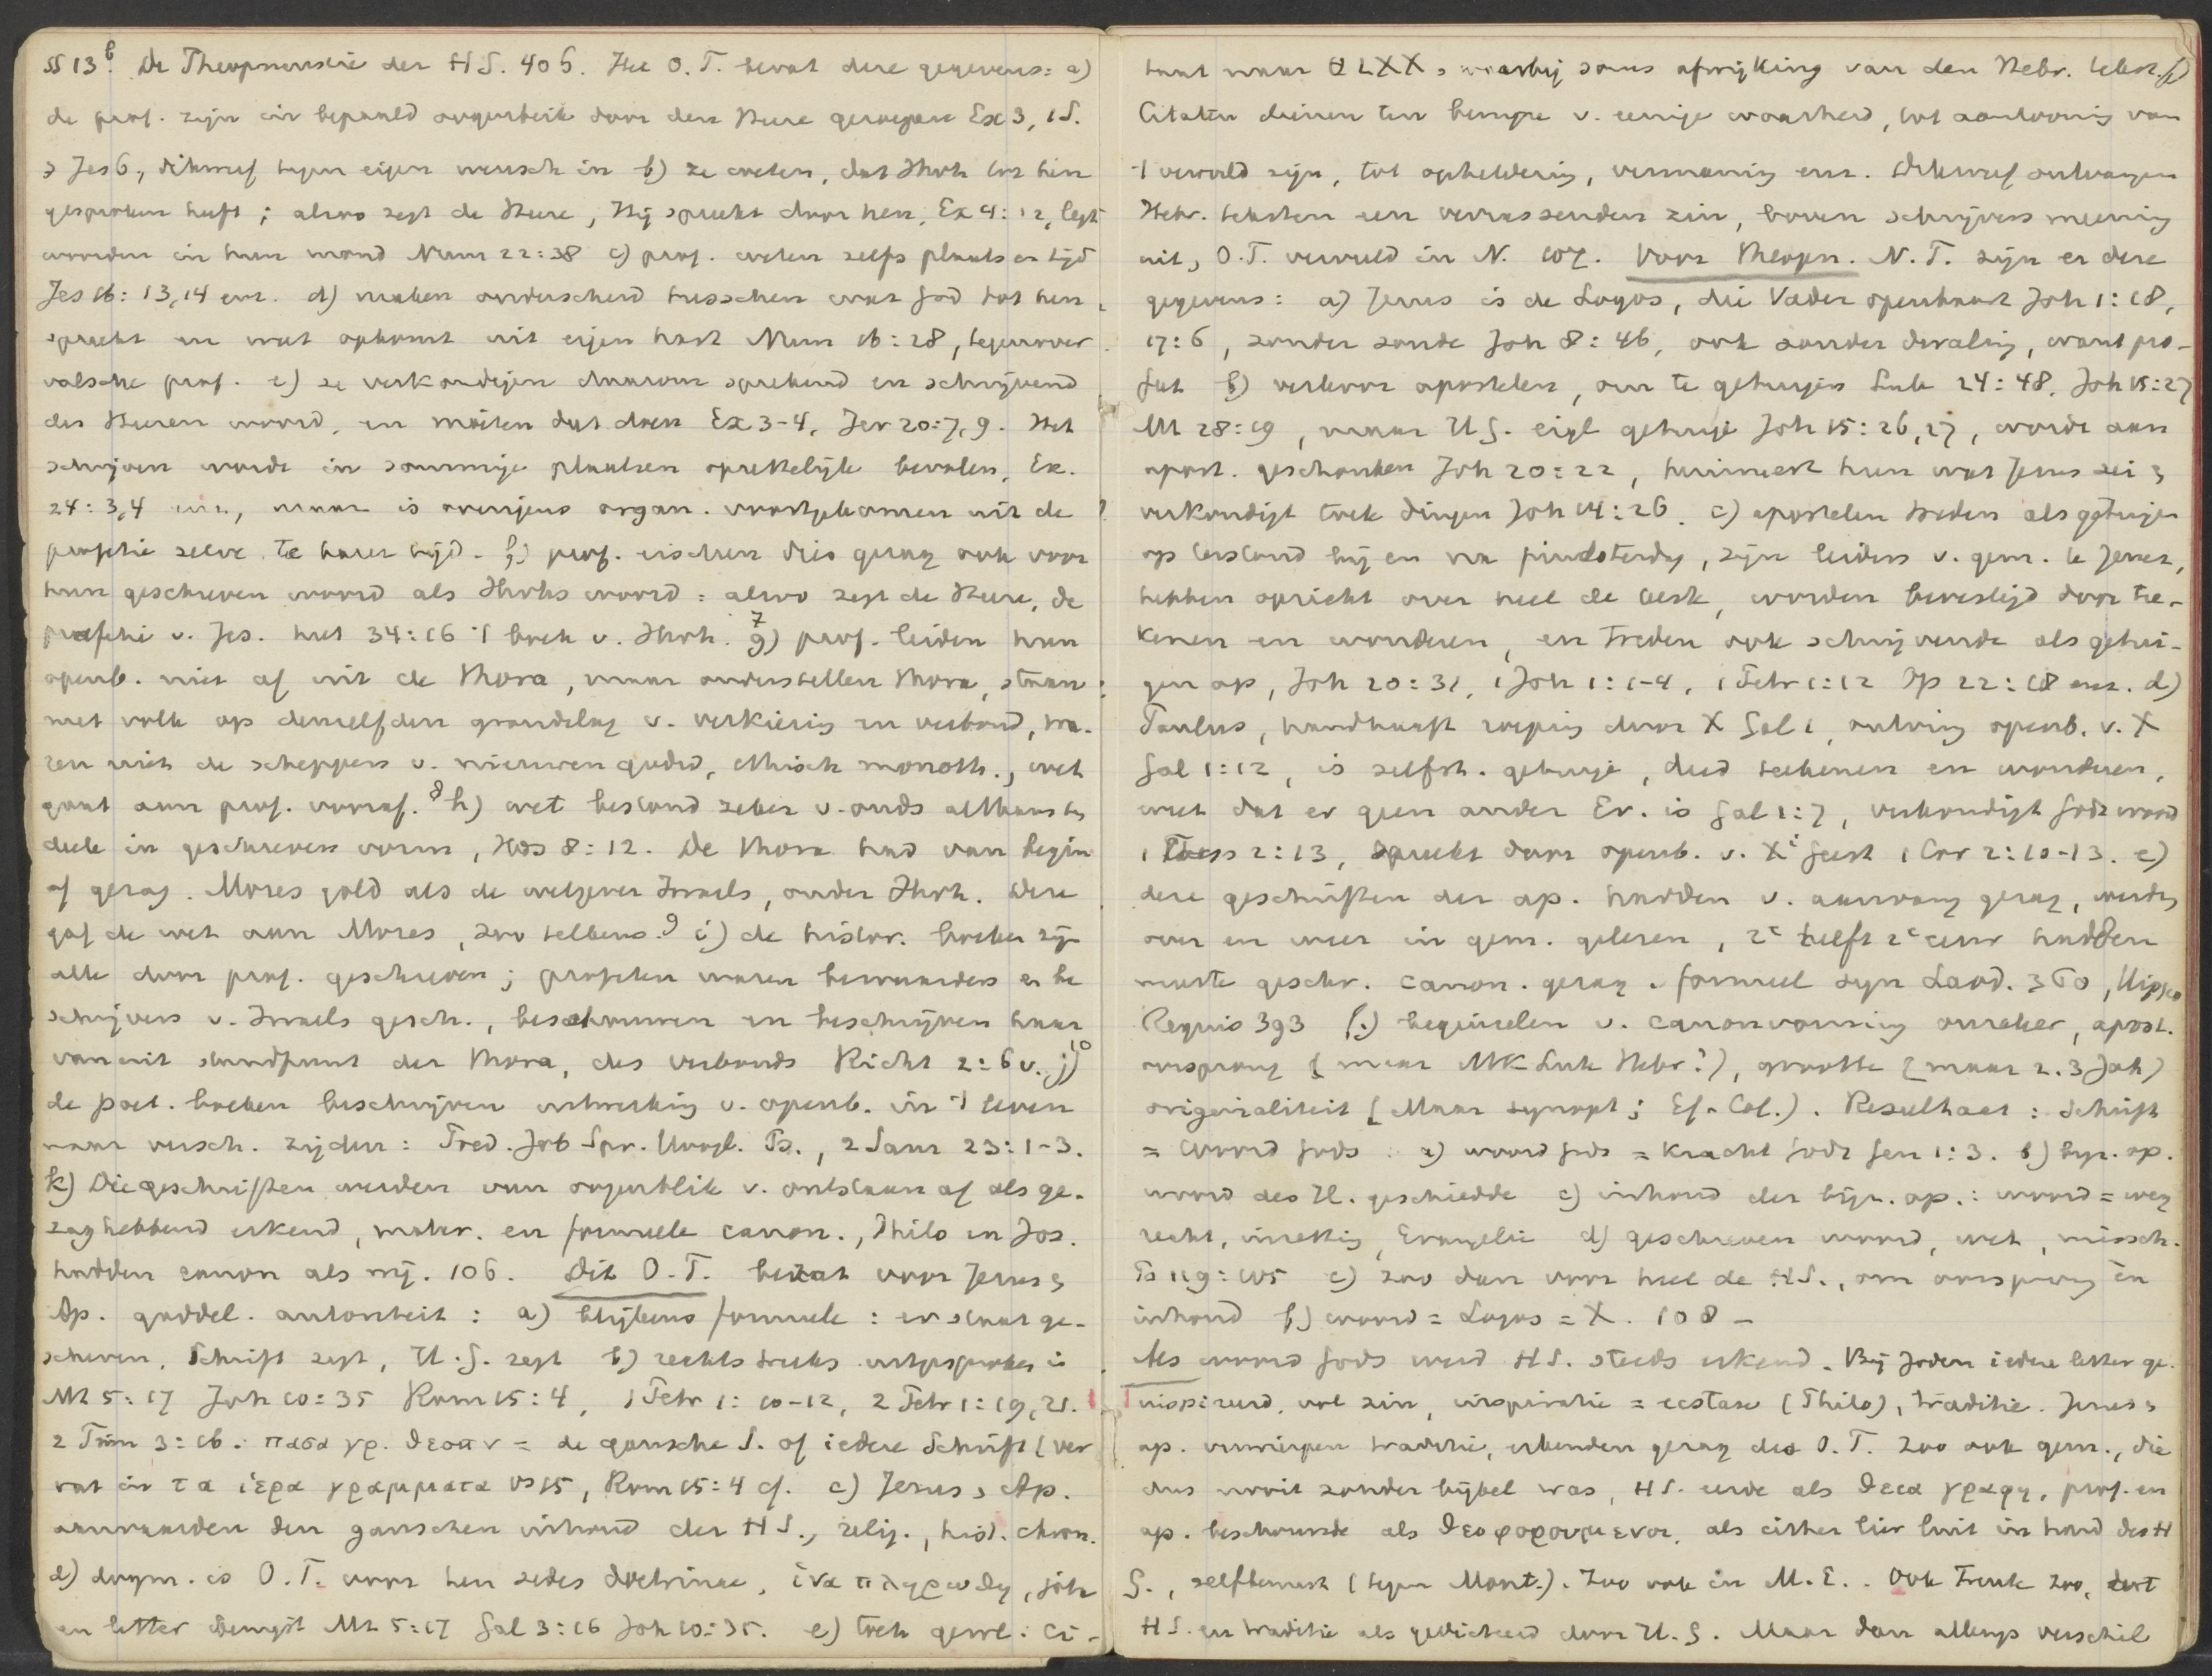 §§ 13b. De Theopneustie der H S. 406. Het O. T. bevat deze gegevens: a)
de prof. zijn in bepaald oogenblik door den Heere geroepen Ex 3, 1 S.
3 Jes 6, dikwerf tegen eigen wensch in b) ze weten, dat Jhvh tot hen
gesproken heeft; alzoo zegt de Heere, Hij spreekt door hen, Ex 4: 12, legt
woorden in hun mond Num 22: 38 c) prof. weten zelfs plaats en tijd
Jes 16: 13,14 enz. d) maken onderscheid tusschen wat God tot hen
spreekt en wat opkomt uit eigen hart Num 16: 28, tegenover
valsche prof. e) ze verkondigen daarom sprekend en schrijvend
des Heeren woord, en moeten dat doen Ex 3-4, Jer 20: 7, 9. Het
schrijven wordt in sommige plaatsen oprettelijk bevolen, Ex.
24: 3,4 enz, maar is overigens organ. voortgekomen uit de
profetie zelve te harer tijd. f) prof. eischen dies gezag ook voor
hun geschreven woord als Jhvhs woord: alzoo zegt de Heere, de
profetie v. Jes. heet 34: 16 't boek v. Jhvh. 7 g) prof. leiden hun
openb. niet af uit de Thora, maar onderstellen Thora, staan
met volk op denzelfden grondslag v. verkiezing en verbond, wa-
ren niet de scheppers v. nieuwen godsd, ethisch monoth., wet
gaat aan prof. vooraf. 8 h) wet bestond zeker v. ouds althans ten
deele in geschreven vorm, Hos 8: 12. De Thora had van begin
af gezag. Mozes gold als de wetgever Israels, onder Jhvh. Deze
gaf de wet aan Mozes, zoo telkens. 9 i) de histor. boeken zijn
alle door prof. geschreven; profeten waren bewaarders en be
schrijvers v. Israels gesch., beschouwen en beschrijven haar
vanuit standpunt der Thora, des verbonds Richt 2: 6 v. j) 10
de poet. boeken beschrijven uitwerking v. openb. in 't leven
naar versch. zijden: Pred. Job Spr. Hoogl. Ps., 2 Sam 23: 1-3.
k) Die geschriften werden van oogenblik v. ontstaan af als ge-
zaghebbend erkend, mater. en formeele canon., Philo en Jos.
hadden canon als wij. 106. Dit O. T. bezat voor Jezus &
Ap. goddel. autoriteit: a) blijkens formule: er staat ge-
schreven, Schrift zegt, H. G. zegt b) rechtstreeks uitgesproken is
Mt 5: 17 Joh 10: 35 Rom 15: 4, 1 Petr 1: 10-12, 2 Petr 1: 19, 21.
2 Tim 3: 16. πασα γρ. θεοπν = de gansche S. of iedere Schrift (ver
vat in τα ἱερα γραμματα vs 15, Rom 15: 4 cf. c) Jezus, Ap.
aanvaarden den ganschen inhoud der H S., relig., hist. chron.
d) dogm. is O. T. voor hen sedes doctrinae, ἱνα πληρωθη, jota
en letter Mt 5: 17 Gal 3: 16 Joh 10: 35. e) trek gewl. ci-
taat naar LXX, waarbij soms afwijking van den Hebr. tekst. f)
Citaten dienen ten bewijze v. eenige waarheid, tot aantooning van
't vervuld zijn, tot opheldering, vermaning enz. Dikwerf ontvangen
Hebr. teksten een verrassenden zin, boven schrijvers meening
uit, O. T. vervuld in N. 107. Voor Theopn. N. T. zijn er deze
gegevens: a) Jezus is de Logos, die Vader openbaart Joh 1: 18,
17: 6, zonder zonde Joh 8: 46, ook zonder dwaling, want pro-
feet b) verkoor apostelen, om te getuigen Luk 24: 48, Joh 15: 27
Mt 28: 19, maar H G. eigl getuige Joh 15: 26, 27, wordt aan
apost. geschonken Joh 20: 22, herinnert hun wat Jezus zei &
verkondigt toek dingen Joh 14: 26. c) apostelen treden als getuigen
op terstond bij en na pinksterdag, zijn leiders v. gem. te Jeruz,
hebben opzicht over heel de kerk, worden bevestigd door tee-
kenen en wonderen, en treden ook schrijvende als getui-
gen op, Joh 20: 31, 1 Joh 1: 1-4, 1 Petr 1: 12 Op 22: 18 enz. d)
Paulus, handhaaft roeping door X Gal 1, ontving openb. v. X
Gal 1: 12, is zelfst. getuige, deed teekenen en wonderen,
weet dat er geen ander Ev. is Gal 1: 7, verkondigt Gods woord
1 Thess 2: 13, spreekt door openb. v. Xi Geest 1 Cor 2: 10-13. e)
deze geschriften der ap. hadden v. aanvang gezag, werden
over en weer in gem. gelezen, 2e helft 2e eeuw hadden
meeste geschr. canon. gezag. formeel syn Laod. 360, Hippo
Regius 393 (f) beginselen v. canonvorming onzeker, apost.
oorsprong (maar Mk Luk Hebr?), grootte (maar 2. 3 Joh)
origenialiteit (Maar synopt; Ef. Col.). Resultaat: Schrift
= woord Gods a) woord Gods = kracht Gods Gen 1: 3. b) bijz. op.
woord des H. geschiedde c) inhoud der bijz. op.: woord = weg
recht, inzetting, Evangelie d) geschreven woord, wet, missch.
Ps 119: 105 e) zoo dan voor heel de H S., om oorsprong en
inhoud f) woord = Logos = X. 108 -
Als woord Gods werd H S. steeds erkend. Bij Joden iedere letter ge-
inspireerd, vol zin, inspiratie = ecstase (Philo), traditie. Jezus &
ap. verwierpen traditie, erkenden gezag des O. T. Zoo ook gem., die
dus nooit zonder bijbel was, H S. eerde als θεια γραφη, prof. en
ap. beschouwde als θεοφορουμενοι, als cither lier luit in hand des H
G., zelfbewust (tegen Mont.). Zoo ook in M. E.. Ook Trente zoo, dat
H S. en traditie als gedicteerd door H. G. Maar dan allengs verschil